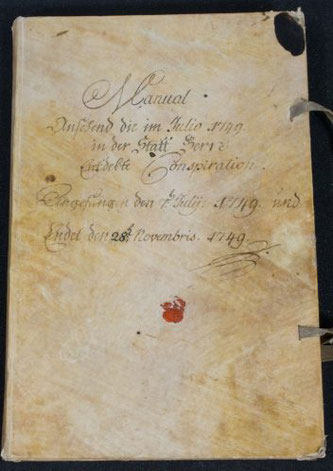 Manual
Ansehend die im Julio 1749
in der Statt Bern
Entdekte Conspiration.
Angefangen den 7t. Julij 1749. und
Endet den 28t. Novembris. 1749.